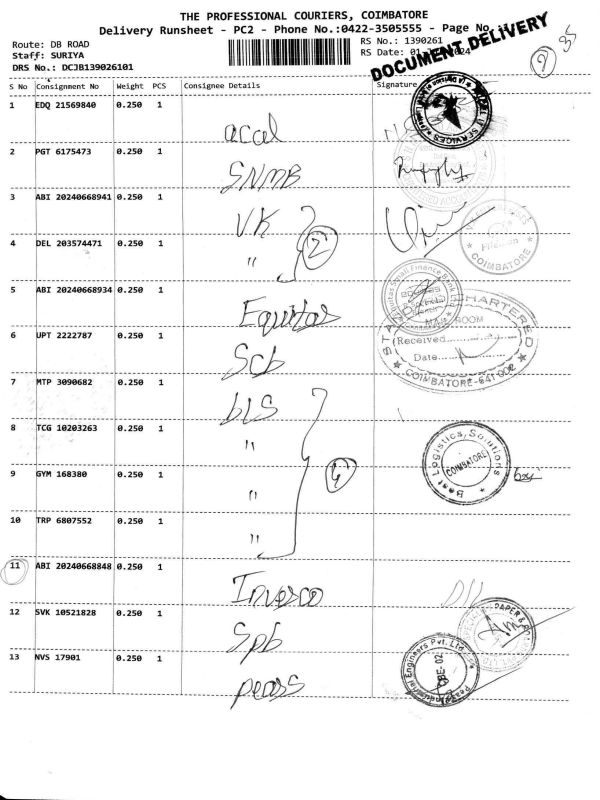 THE PROFESSIONAL COURIERS, COIMBATORE
Delivery Runsheet - PC2 - Phone No.:0422-3505555 - Page No.
Route: DB ROAD
RS No.: 1390261
Staff: SURIYA
RS Date: 01 2024
DRS No.: DCJB139026101
DOCUMENT DELIVERY
9
S No Consignment No Weight PCS Consignee Details Signature
1 EDQ 21569840 0.250 1
accel
2 PGT 6175473 0.250 1
SNMB
3 ABI 20240668941 0.250 1
VK
2
4 DEL 203574471 0.250 1
"
COIMBATORE
5 ABI 20240668934 0.250 1
Equitas
Equitas Small Finance Bank Ltd
6 UPT 2222787 0.250 1
Scb
STANDARD CHARTERED
MAIL ROOM
Received
Date
COIMBATORE-641 002
7 MTP 3090682 0.250 1
bLS
8 TCG 10203263 0.250 1
"
4
Best Logistics Solutions
COIMBATORE
9 GYM 168380 0.250 1
"
10 TRP 6807552 0.250 1
"
11 ABI 20240668848 0.250 1
Invesco
12 SVK 10521828 0.250 1
Spb
PAPER &
13 NVS 17901 0.250 1
peass
Peass Industrial Engineers Pvt. Ltd.
CBE- 02